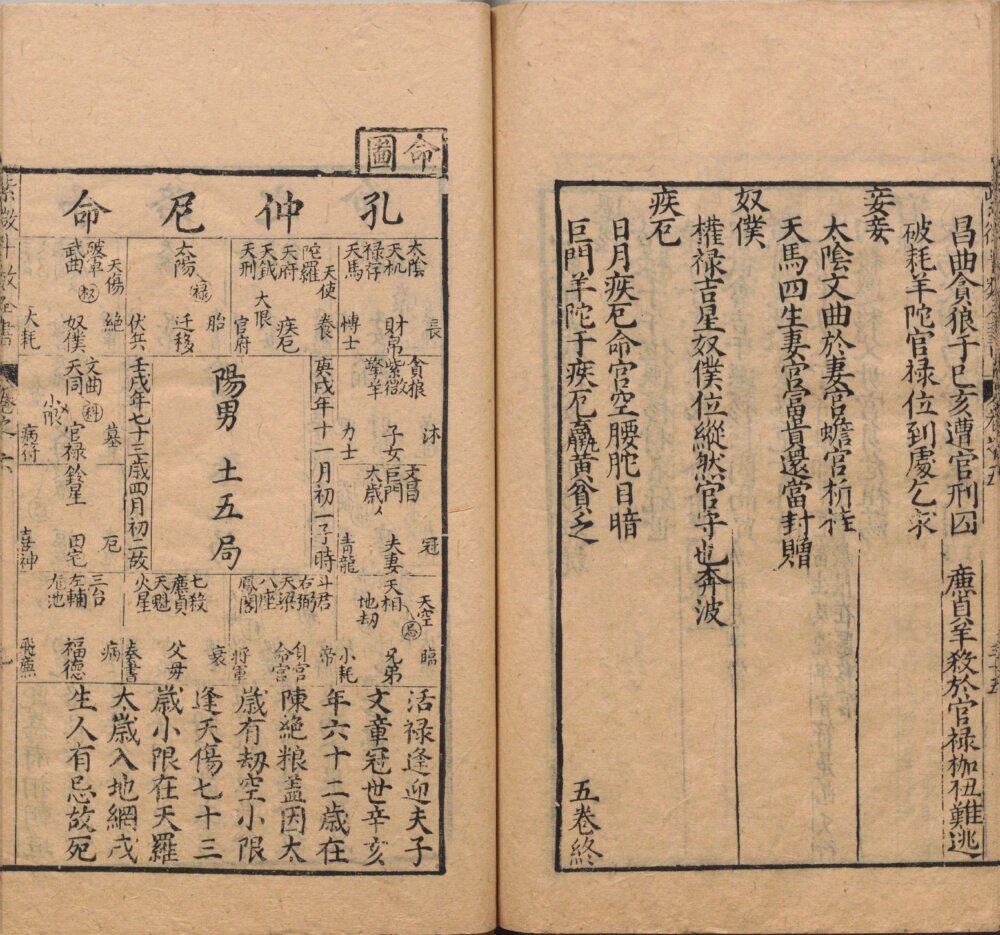 昌曲貪狼子巳亥遭官刑囚
廉貞羊殺於官禄枷杻難逃
破耗羊陀官禄位到處乞求
妾妾
太陰文曲於妻宮蟾宮析桂
天馬四生妻宮富貴還當封贈
奴僕
權禄吉星奴僕位縱然官守也奔波
疾厄
日月疾厄命宮空腰駝目暗
巨門羊陀于疾厄羸黄貧乏
五卷終
命圖
孔仲尼命
太陰
天机
禄存
天馬
財帛
長
博士
天使
陀羅
天府
天鉞
天刑
大限
疾厄
養
官府
太陽
禄
迁移
胎
伏兵
天傷
破軍
武曲
权
奴僕
絶
大耗
貪狼
紫微
擎羊
子女
沐
力士
庚戌年十一月初一子時
陽男
土五局
壬戌年七十三歲四月初二故
文曲
科
天同
小限
官禄
墓
病符
文昌
巨門
太歲
夫妻
冠
青龍
鈴星
田宅
厄
喜神
天空
天相
地劫
兄弟
臨
小耗
斗君
右弼
天梁
八座
鳳閣
命宮
帝
將軍
七殺
廉貞
天魁
火星
父母
衰
奏書
三台
左輔
福德
病
飛廉
活禄逢迎夫子
文章冠世辛亥
年六十二歲在
陳絶粮蓋因太
歲有劫空小限
逢天傷七十三
歲小限在天羅
太歲入地網戌
生人有忌故死
紫微斗數全書
卷之六